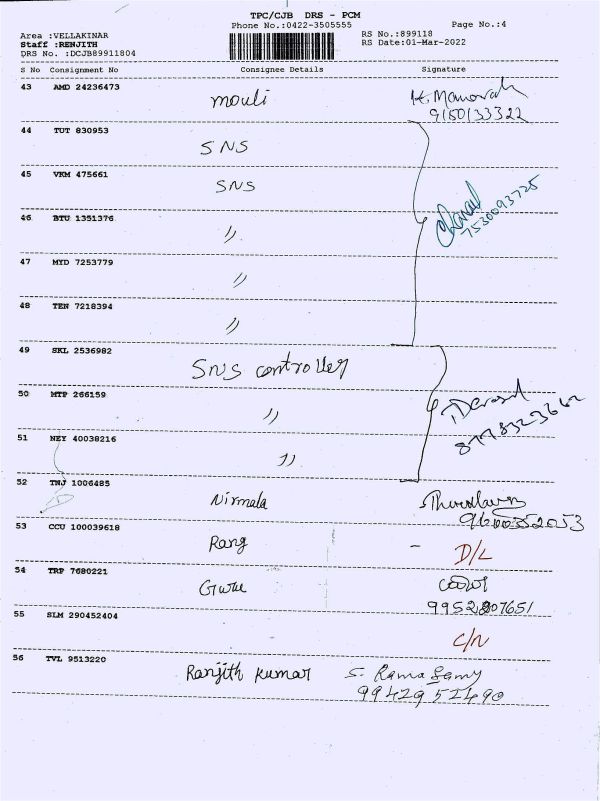 TPC/CJB DRS - PCM
Phone No.:0422-3505555
Page No.:4
Area :VELLAKINAR
Staff :RENJITH
DRS No. :DCJB89911804
RS No.:899118
RS Date:01-Mar-2022
S No Consignment No Consignee Details Signature
43 AMD 24236473 mouli
9150133322
44 TUT 830953 SNS
45 VKM 475661 SNS
7530093725
46 BTU 1351376 〃
47 MYD 7253779 〃
48 TEN 7218394 〃
49 SKL 2536982 SNS controller
50 MTP 266159 〃
51 NEY 40038216 〃
52 TNJ 1006485 Nirmala
9600352053
53 CCU 100039618 Rang - D/L
54 TRP 7680221 Guru
55 SLM 290452404 C/N
56 TVL 9513220 Ranjith Kumar S. Rama Samy